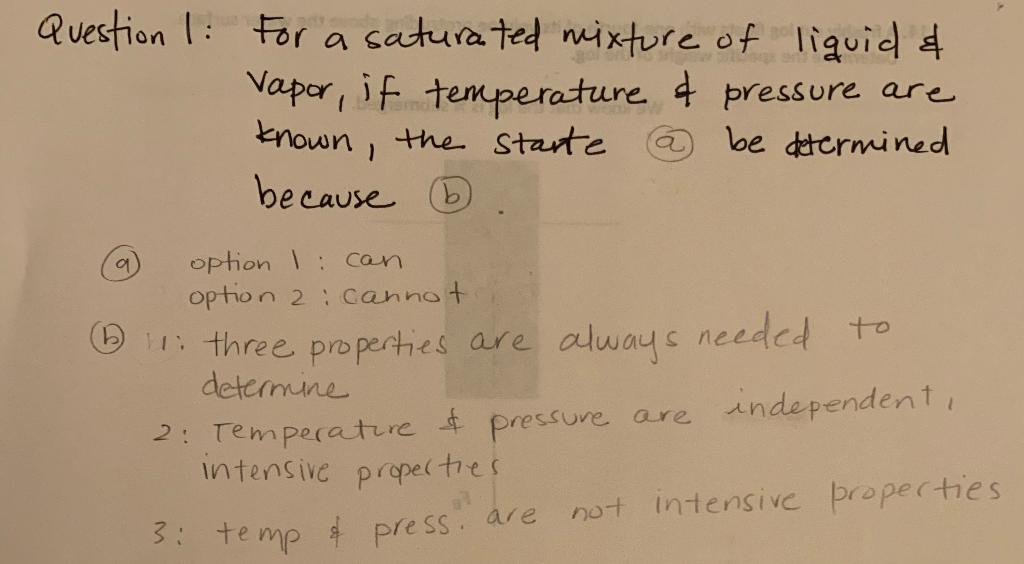 Question 1: For a saturated mixture of liquid &
Vapor, if temperature & pressure are
known, the state (a) be determined
because (b).
(a) option 1: can
option 2: cannot
(b) 1: three properties are always needed to
determine
2: Temperature & pressure are independent,
intensive properties
3: temp & press. are not intensive properties